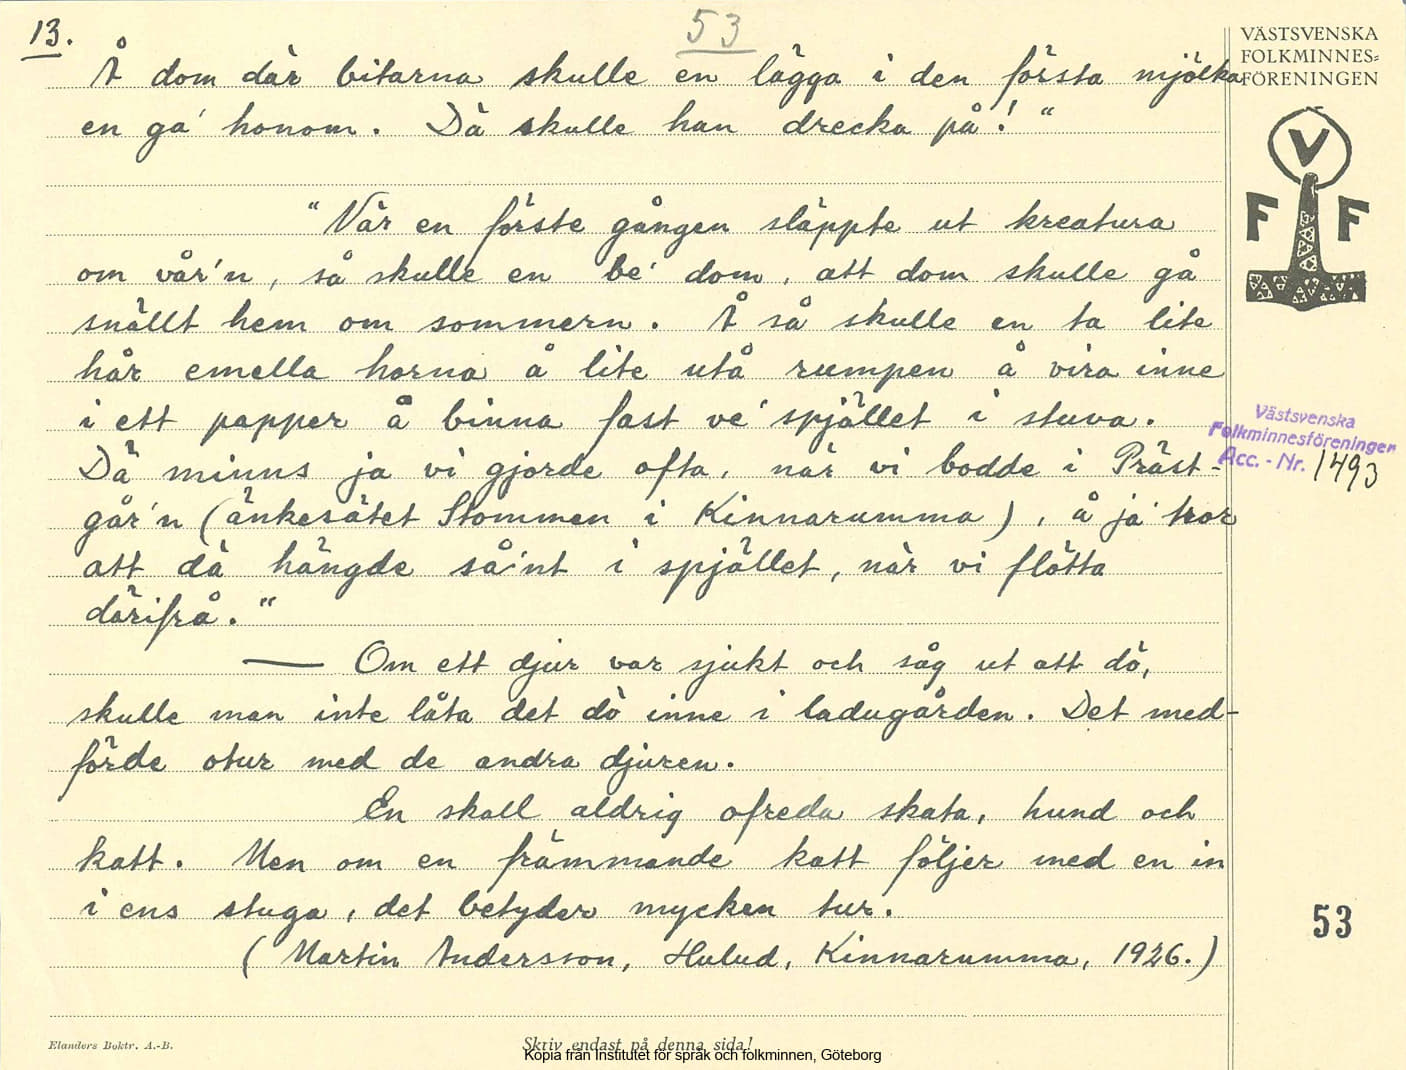 13.
53
VÄSTSVENSKA
FOLKMINNES=
FÖRENINGEN
V
F F
Å dom där bitarna skulle en lägga i den första mjölka
en ga' honom. Dä skulle han drecka på! "
"När en förste gången släppte ut kreatura
om vår'n, så skulle en be' dom, att dom skulle gå
snällt hem om sommern. Å så skulle en ta lite
hår emella horna å lite utå rumpen å vira inne
i ett papper å binna fast ve' spjället i stuva.
Dä minns ja vi gjorde ofta, när vi bodde i Präst-
går'n (änkesätet Stommen i Kinnarumma), å ja' tror
att dä hängde så'nt i spjället, när vi flötta
därifrå."
— Om ett djur var sjukt och såg ut att dö,
skulle man inte låta det dö inne i ladugården. Det med-
förde otur med de andra djuren.
En skall aldrig ofreda skata, hund och
katt. Men om en främmande katt följer med en in
i ens stuga, det betyder mycken tur.
(Martin Andersson, Hulud, Kinnarumma, 1926.)
Västsvenska
Folkminnesföreningen
Acc. - Nr. 1493
53
Elanders Boktr. A.-B.
Skriv endast på denna sida!
Kopia från Institutet för språk och folkminnen, Göteborg